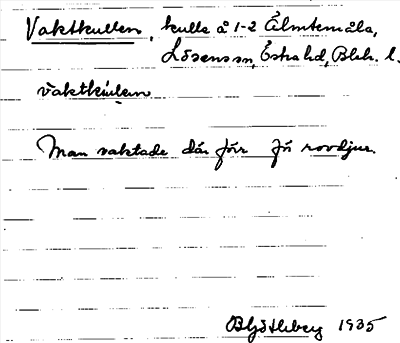 Vaktkullen, kulle å 1-2 Älmtemåla,
Lösens sn, Östra hd, Blek. l.
vaktkúlen
Man vaktade där förr för rovdjur.
1935